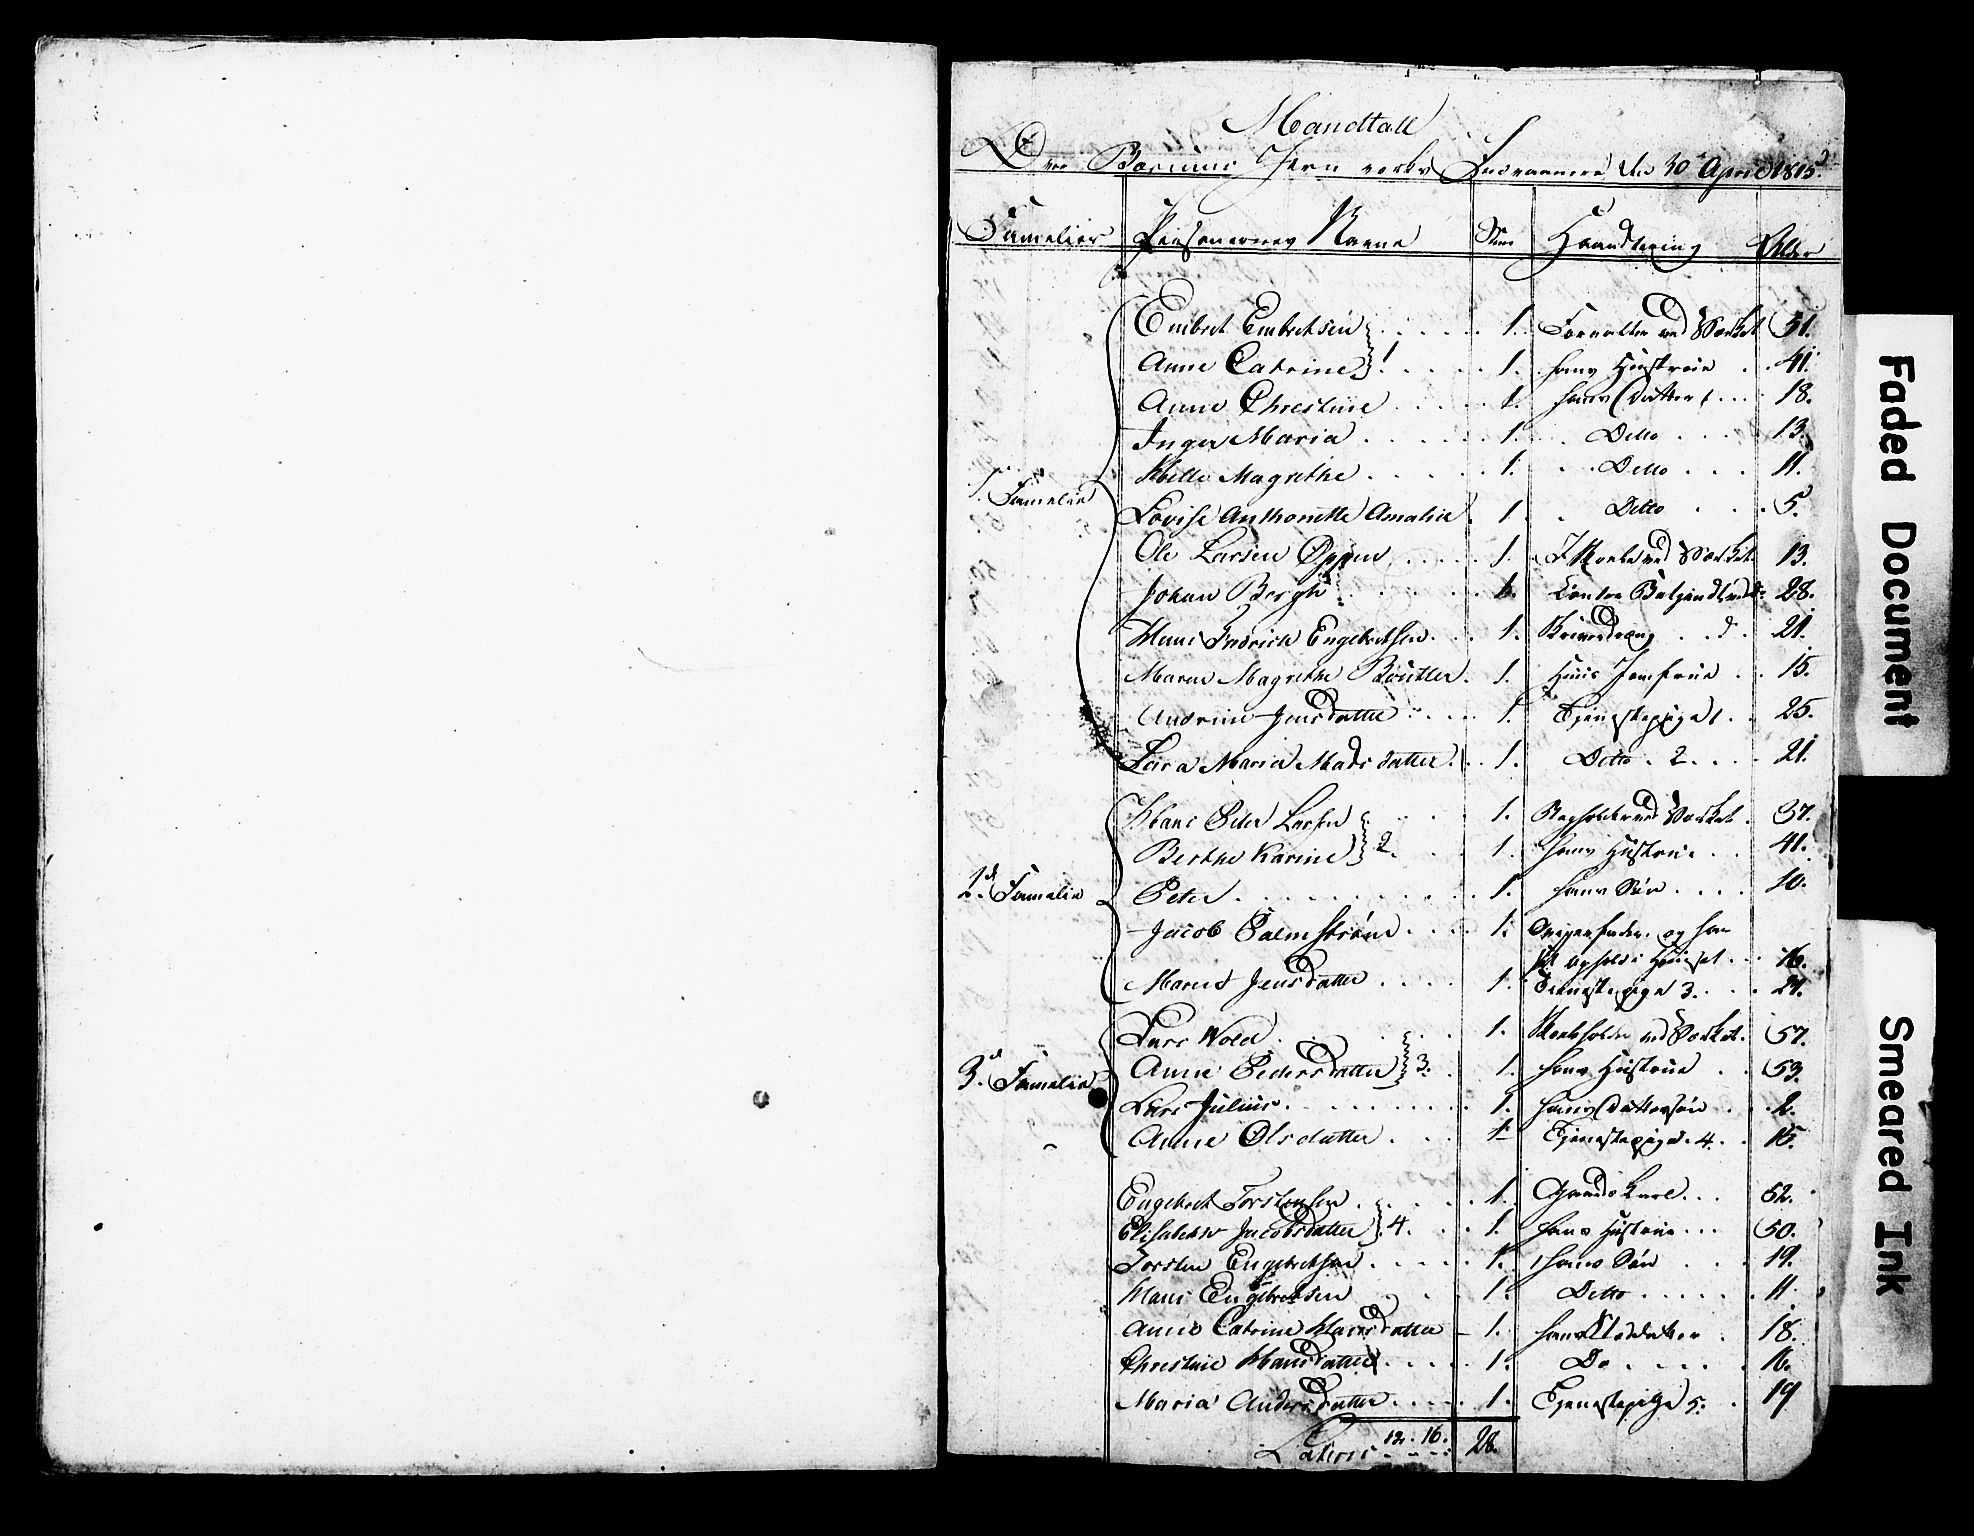 Mandtall
Over Bærums Jernverks Indvaanere den 30te April 1815
Familier Personernes Navne Sum Haandtering Alder
1te Familie
Embret Embretsen 1. Forvalter ved Værket 51.
Anne Catrine } 1 1. hans Hustrue 41.
Anne Christine 1. hans Datter 18.
Inger Maria 1. Ditto 13.
Helle Magrethe 1. Ditto 11.
Lovise Anthonette Amalia 1. Ditto 5.
Ole Larsen Oppen 1. ved Værket 13.
Johan Bergh 1. Contoir 28.
Hans Fredrich Engebretsen 1. d 21.
Maren Magrethe Böuttler 1. Huus Jomfrue 15.
Andrine Jensdatter 1. Tjenestepige 1. 25.
Lara Maria Madsdatter 1. Ditto 2. 21.
2d Familie
Hans Peter Larsen 1. ved Værket 37.
Berthe Karine } 2. 1. hans Hustrue 41.
Peter 1. hans Søn 10.
Jacob Palmstrøm 1. og har
sit ophold i Huuset 16.
Maren Jensdatter 1. Tienestepige 3. 24.
3d Familie
Lars Wold 1. ved Værket 57.
Anne Pedersdatter } 3. 1. hans Hustrue 53.
Lars Julius 1. hans Dattersøn 2.
Anne Olsdatter 1 Tjenestepige 4. 15.
Engebret Torstensen 1. Gaards Karl 52.
Elisabeth Jacobsdatter } 4. 1. hans Hustrue 50.
Torsten Engebretsen 1. hans Søn 19.
Hans Engebretsen 1. Ditto 11.
Anne Catrine Hansdatter 1. hans Steddatter 18.
Christine Hansdatter 1. Do 16.
Maria Andersdatter 1. Tjenestepige 5. 19
Lateris 12. 16. 28.
Faded Document
Smeared Ink